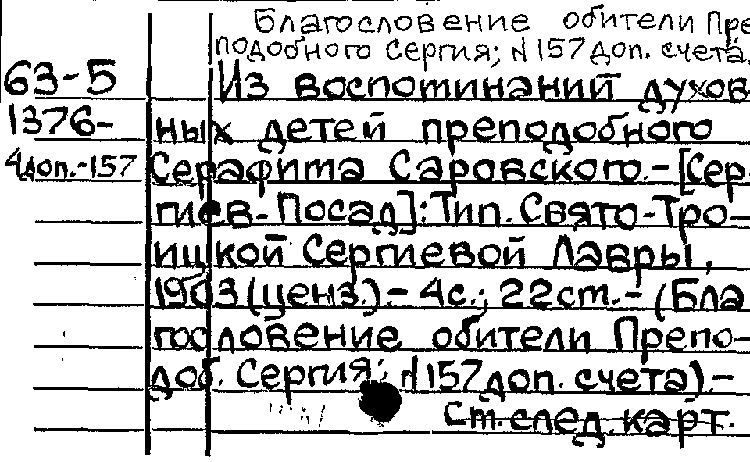 Благословение обители Пре
подобного Сергия; N157 доп. счета.
63-5 Из воспоминаний духов-
1376- ных детей преподобного
4доп.-157 Серафима Саровского.-[Сер-
гиев-Посад]:Тип.Свято-Тро-
ицкой Сергиевой Лавры,
1903(ценз.).- 4с.; 22см.- (Бла
гословение обители Препо-
доб. Сергия; N157доп. счета).-
См.след.карт.